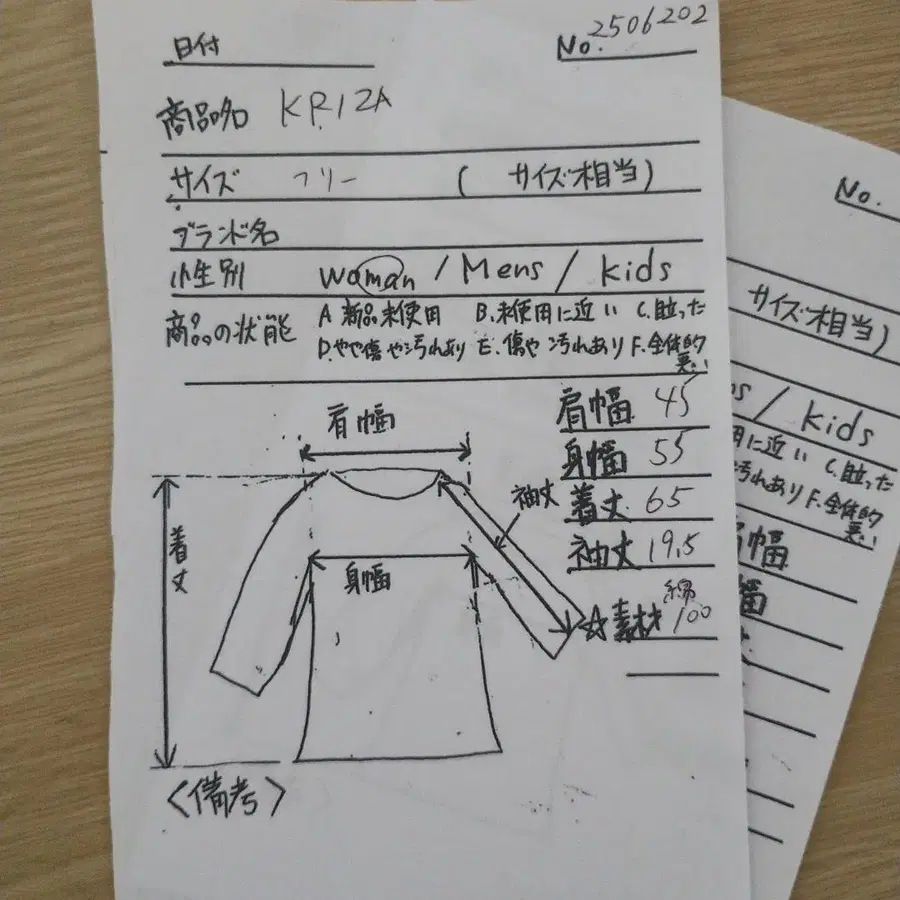 日付
No. 2506202
商品名 KRIZA
サイズ フリー ( サイズ相当)
ブランド名
性別 Waman / Mens / kids
商品の状態 A 新品未使用 B.未使用に近い C.目立った
D.やや傷や汚れあり E.傷や汚れあり F.全体的
悪い
肩幅
肩幅 45
身幅 55
着丈 65
袖丈 19.5
☆素材 綿100
袖丈
着丈
身幅
〈備考〉
No.
サイズ相当)
ns / kids
用に近い C.目立った
汚れあり F.全体的
悪い
肩幅
幅